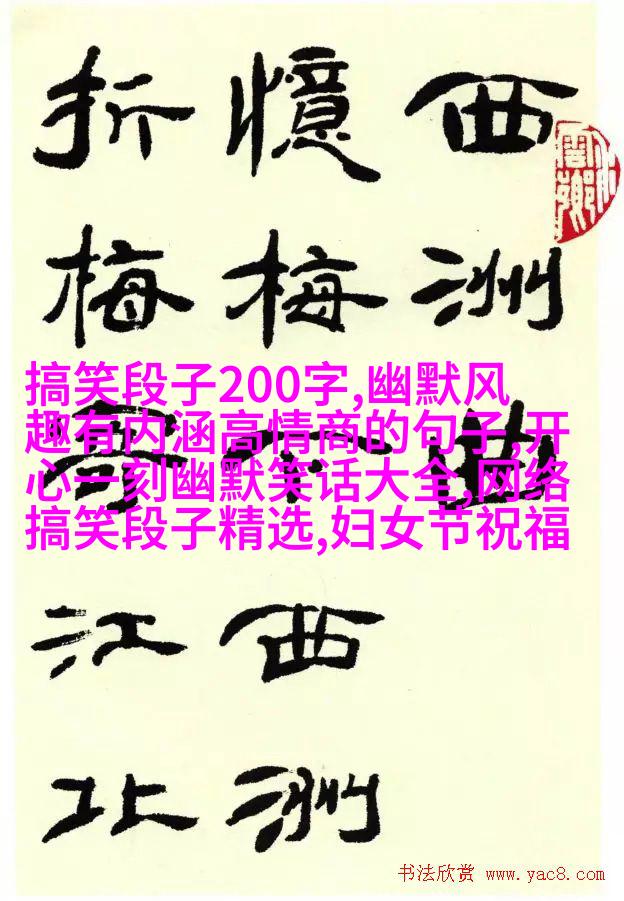 西洲曲
憶梅下西洲
折梅寄江北
搞笑段子200字,幽默风
趣有内涵高情商的句子,开
心一刻幽默笑话大全,网络
搞笑段子精选,妇女节祝福
书法欣赏 www.yac8.com